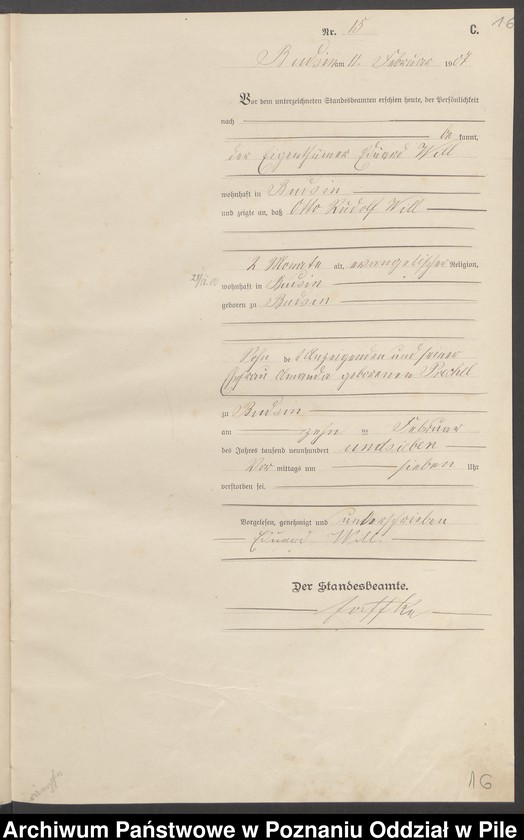 16
Nr. 15 C.
Budsin am 11. Februar 1907
Vor dem unterzeichneten Standesbeamten erschien heute, der Persönlichkeit
nach
be kannt,
der Eigenthümer Eduard Will
wohnhaft in Budsin
und zeigte an, daß Otto Rudolf Will
2 Monate alt, evangelischer Religion,
wohnhaft in Budsin
geboren zu Budsin
Sohn des Anzeigenden und seiner
Ehefrau Amanda geborenen
zu Budsin
am zehn ten Februar
des Jahres tausend neunhundert und sieben
Vor mittags um sieben Uhr
verstorben sei.
Vorgelesen, genehmigt und unterschrieben
Eduard Will.
Der Standesbeamte.
16
Archiwum Państwowe w Poznaniu Oddział w Pile